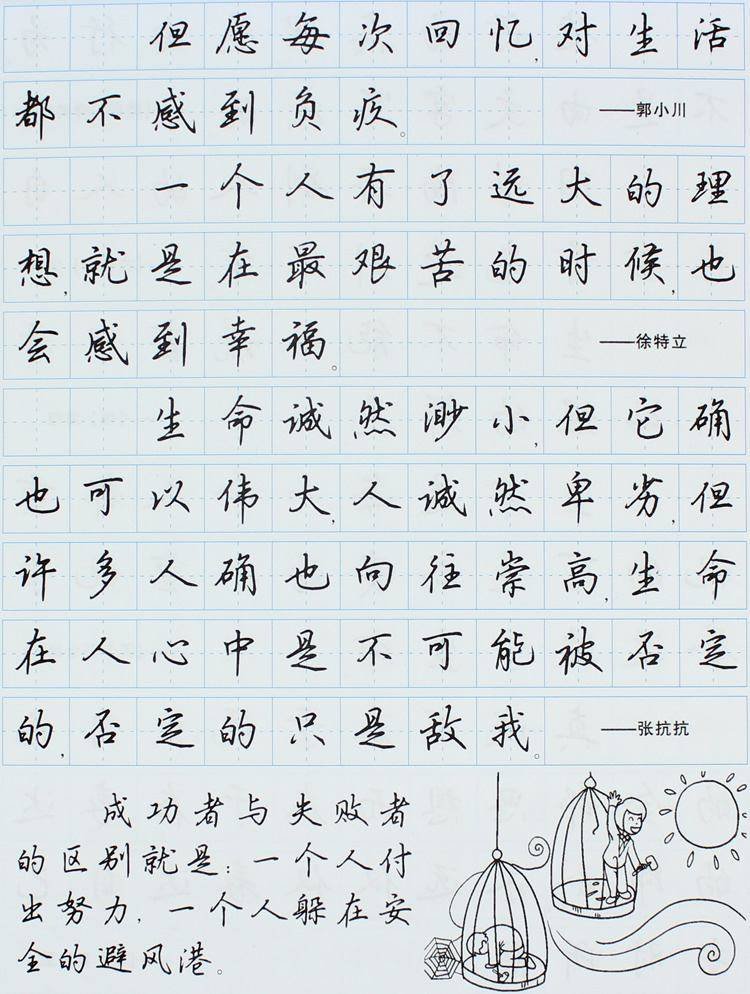 但愿每次回忆,对生活
都不感到负疚。 ——郭小川
一个人有了远大的理
想,就是在最艰苦的时候,也
会感到幸福。 ——徐特立
生命诚然渺小,但它确
也可以伟大,人诚然卑劣,但
许多人确也向往崇高,生命
在人心中是不可能被否定
的,否定的只是敌我。 ——张抗抗
成功者与失败者
的区别就是:一个人付
出努力,一个人躲在安
全的避风港。